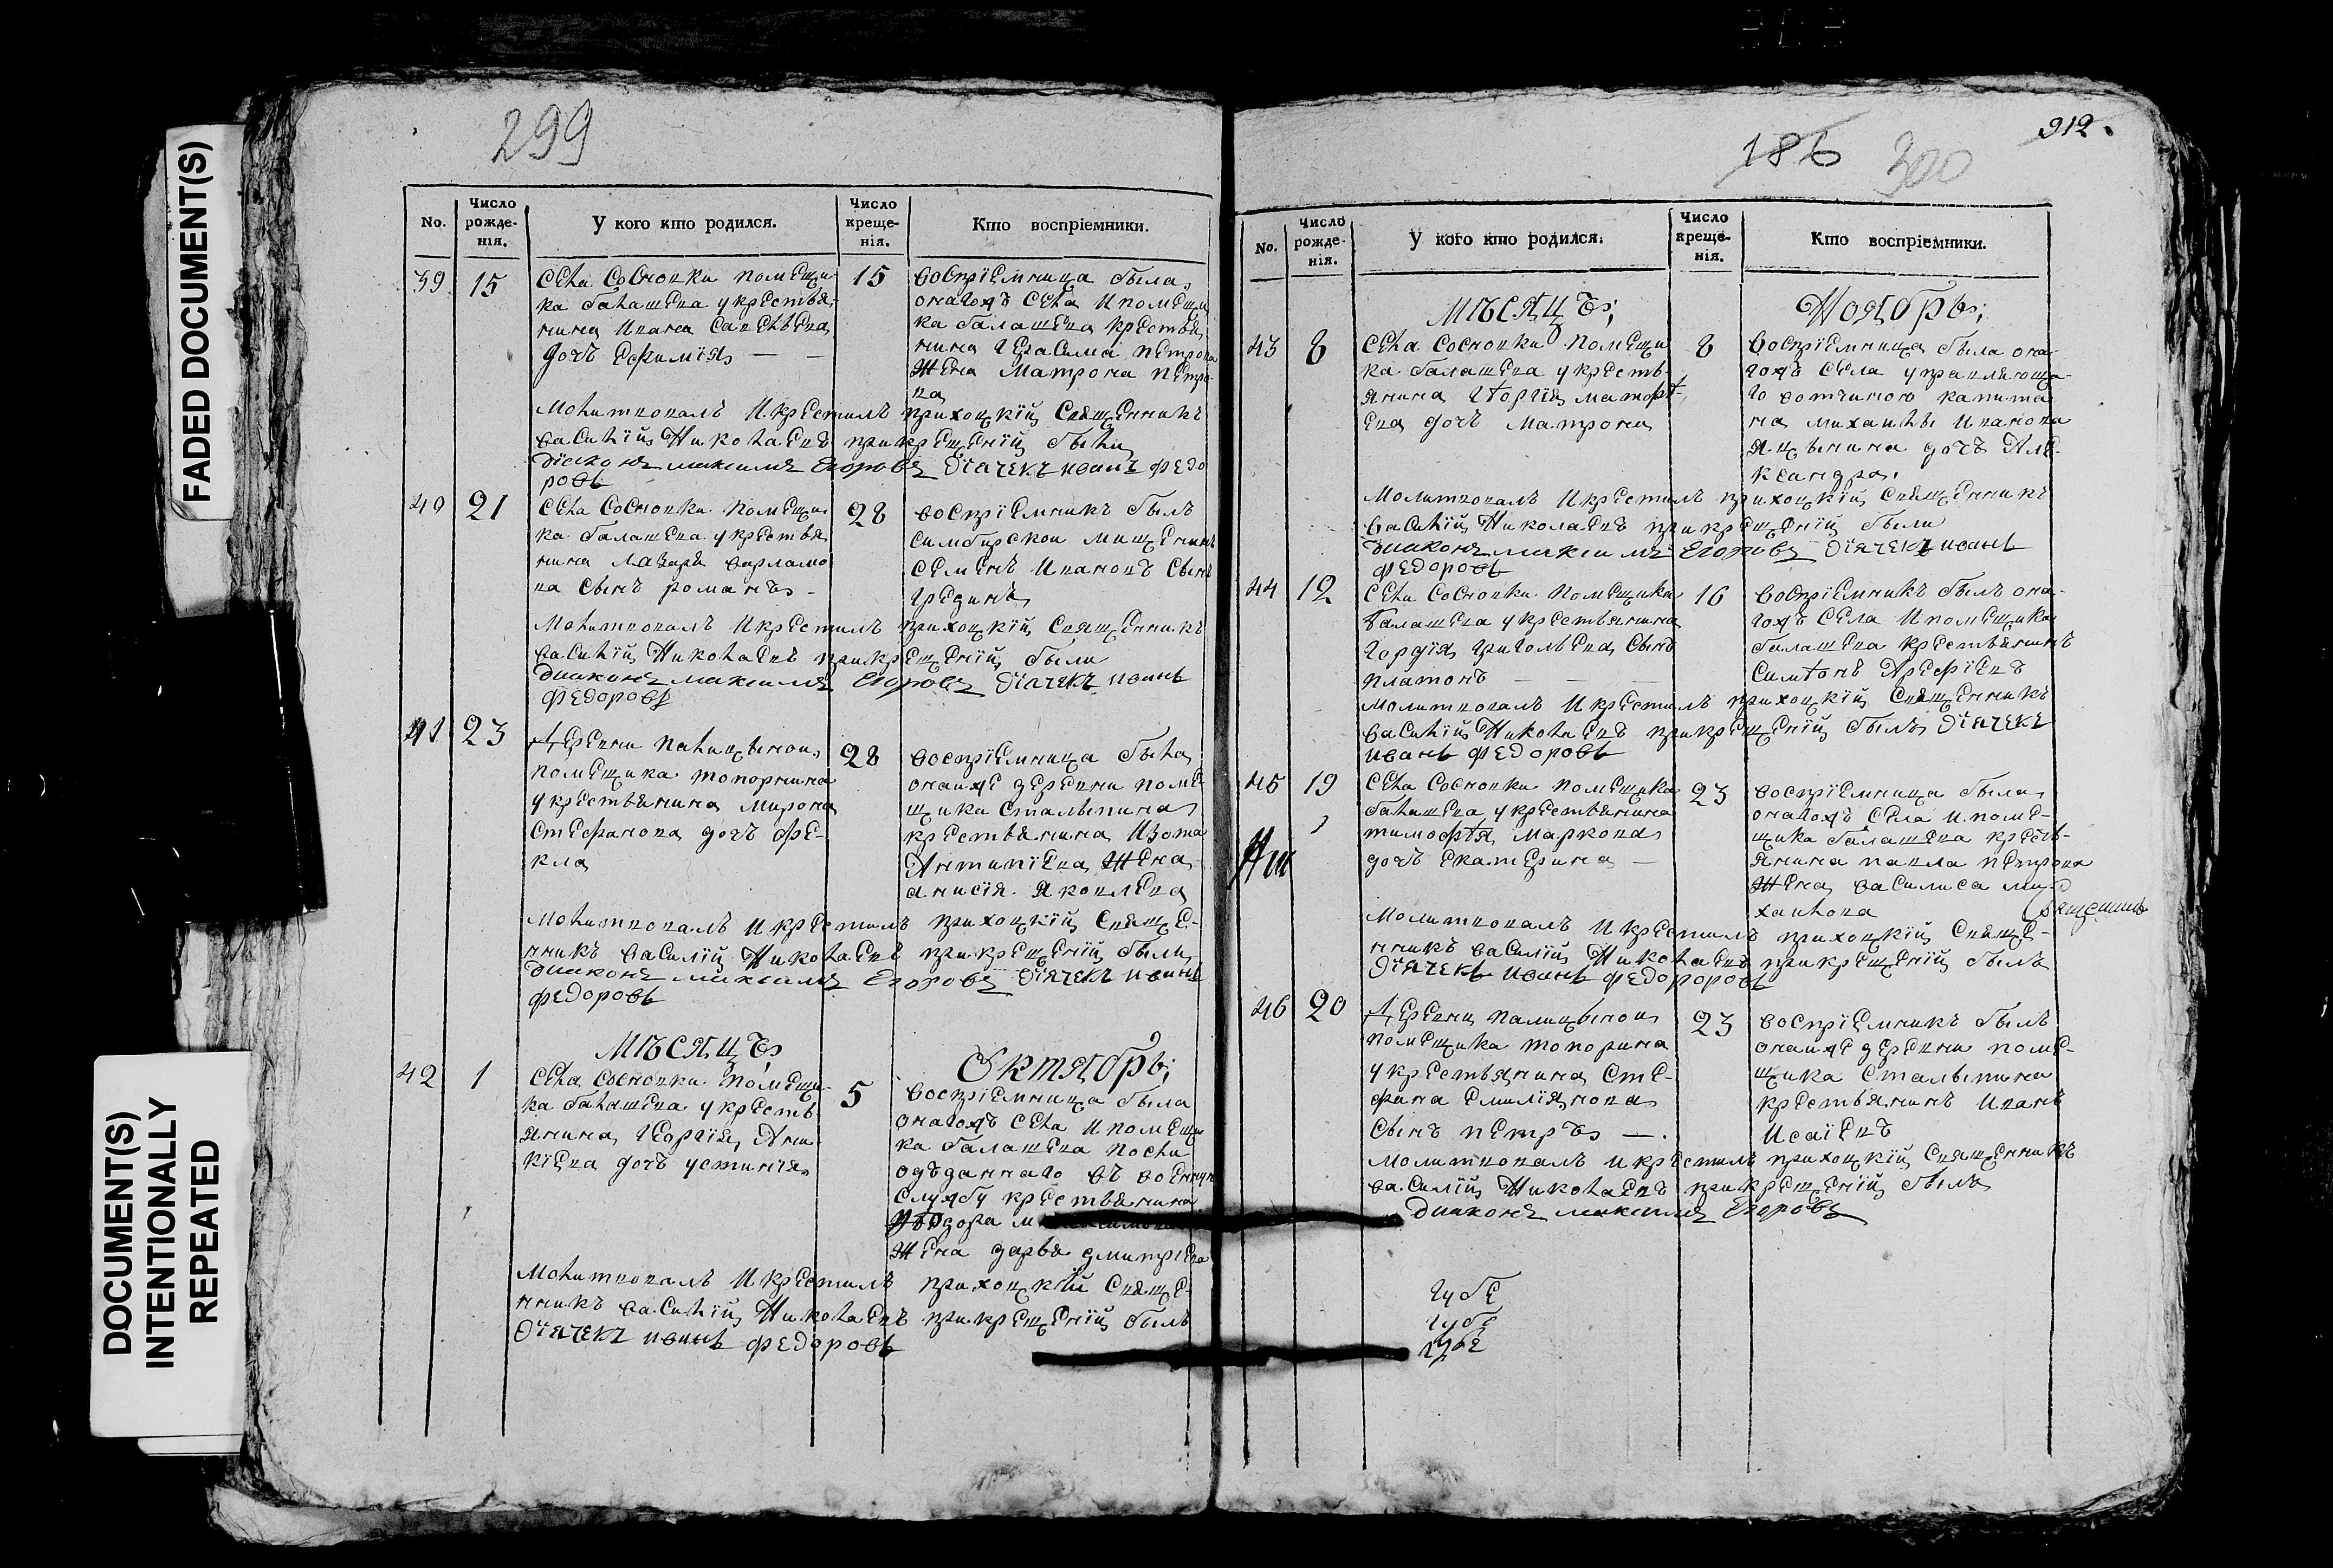 FADED DOCUMENT(S)
DOCUMENT(S)
INTENTIONALLY
REPEATED
299
No.
Число рожде- нія.
У кого кто родился.
Число креще- нія.
Кто воспріемники.
39
15
села Сосновки помещи
ка балашева у крестья
нина Ивана Савельева
дочь Ефимія
15
воспріемница была
оногожъ села и помещи
ка балашева крестья
нина Герасима петрова
жена Матрона петро
ва
Молитвовалъ и крестилъ приходскій священникъ
василій Николаевъ при крещеніи были
діаконъ максимъ Егоровъ дiачекъ иванъ федо
ровъ
40
21
села Сосновки помещи
ка балашева у крестья
нина лазаря варламо
ва сынъ романъ
28
воспріемникъ былъ
симбирской мищенинъ
семенъ Ивановъ сынъ
Молитвовалъ и крестилъ приходскій священникъ
василій Николаевъ при крещеніи были
диаконъ максимъ Егоровъ діачекъ иванъ
федоровъ
41
23
Деревни палицыной
помещика топорнина
у крестьянина мирона
стефанова дочь фе-
кла
28
воспріемница была
оныяже деревни поме
щика столыпина
крестьянина Изота
Антипіева жена
анисія яковлева
Молитвовалъ и крестилъ приходскій свяще-
нникъ василій Николаевъ при крещеніи были
диаконъ максимъ Егоровъ діячекъ иванъ
федоровъ
мѣсяцъ
Октябрь;
42
1
села Сосновки помещи-
ка балашева у кресть
янина Георгія Ани
кіева дочь устинія
5
воспріемница была
оногожъ села и помещи
ка балашева посли
одъданнаго въ военную
службу крестьянина
жена дарья дмитріева
Молитвовалъ и крестилъ приходскій свяще-
нникъ василій Николаевъ при крещеніи былъ
діячекъ иванъ федоровъ
186
300
912.
No.
Число рожде- нія.
У кого кто родился.
Число креще- нія.
Кто воспріемники.
мѣсяцъ;
Ноябрь;
43
8
села Сосновки помещи
ка балашева у кресть
янина Георгія матфе
ева дочь матрона
8
воспріемница была оно
гожъ села управляюща-
го вотчиною капита
на михаилы Иванова
Яцынина дочь Але-
ксандра.
Молитвовалъ и крестилъ приходскій священникъ
василій Николаевъ при крещеніи были
диаконъ максимъ Егоровъ діячекъ иванъ
федоровъ
44
12
села Сосновки помещика
балашева у крестьянина
гордія григорьева сынъ
платонъ
16
воспріемникъ былъ оно-
гожъ села и помещика
балашева крестьянинъ
симеонъ Арефіевъ
молитвовалъ и крестилъ приходскій священникъ
василій Николаевъ при крещеніи былъ діячекъ
иванъ федоровъ
45
19
села Сосновки помещика
балашева у крестьянина
тимофея маркова
дочь екатерина
23
воспріемница была
оногожъ села и поме-
щика балашева кресть-
янина павла петрова
жена василиса ми-
хаилова
Молитвовалъ и крестилъ приходскій свяще-
нникъ василій Николаевъ при крещеніи былъ
діячекъ иванъ федороровъ
46
20
Деревни палицыной
помещика топорина
у крестьянина сте-
фана емиліянова
сынъ петръ
23
воспріемникъ былъ
оныяже деревни поме-
щика столыпина
крестьянинъ Иванъ
Исаіевъ
молитвовалъ и крестилъ приходскій священникъ
василій Николаевъ при крещеніи былъ
диаконъ максимъ Егоровъ
губе
губе
губе